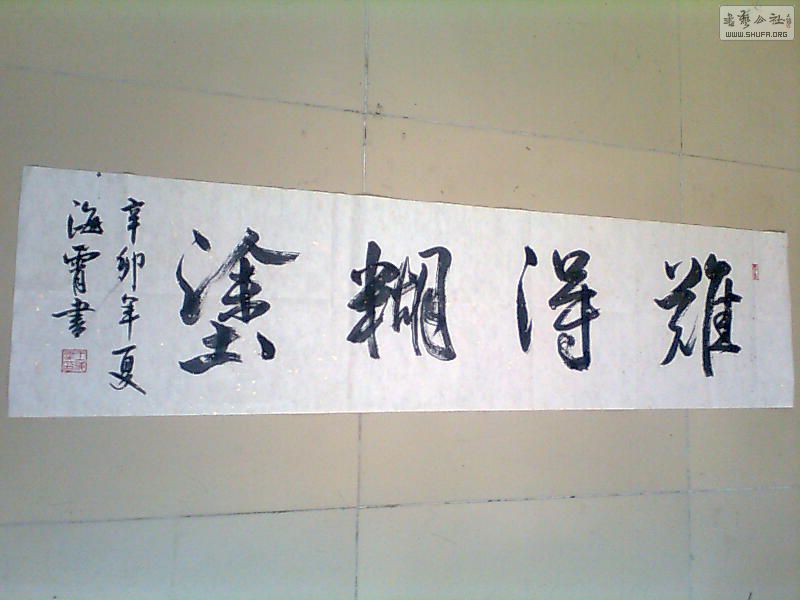 難得糊塗
辛卯年夏
海霄書
書藝公社
WWW.SHUFA.ORG